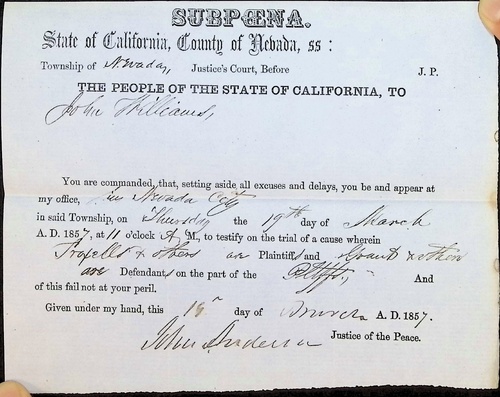 SUBPŒNA.
State of California, County of Nevada, ss:
Township of Nevada, Justice's Court, Before J. P.
THE PEOPLE OF THE STATE OF CALIFORNIA, TO
John Williams,
You are commanded, that, setting aside all excuses and delays, you be and appear at
my office, in Nevada City
in said Township, on Thursday the 19th day of March
A. D. 1857, at 11 o'clock A M., to testify on the trial of a cause wherein
& others are Plaintiffs and Grant & others
are Defendants on the part of the Pltffs, And
of this fail not at your peril.
Given under my hand, this 18 day of March A. D. 1857.
John Anderson Justice of the Peace.